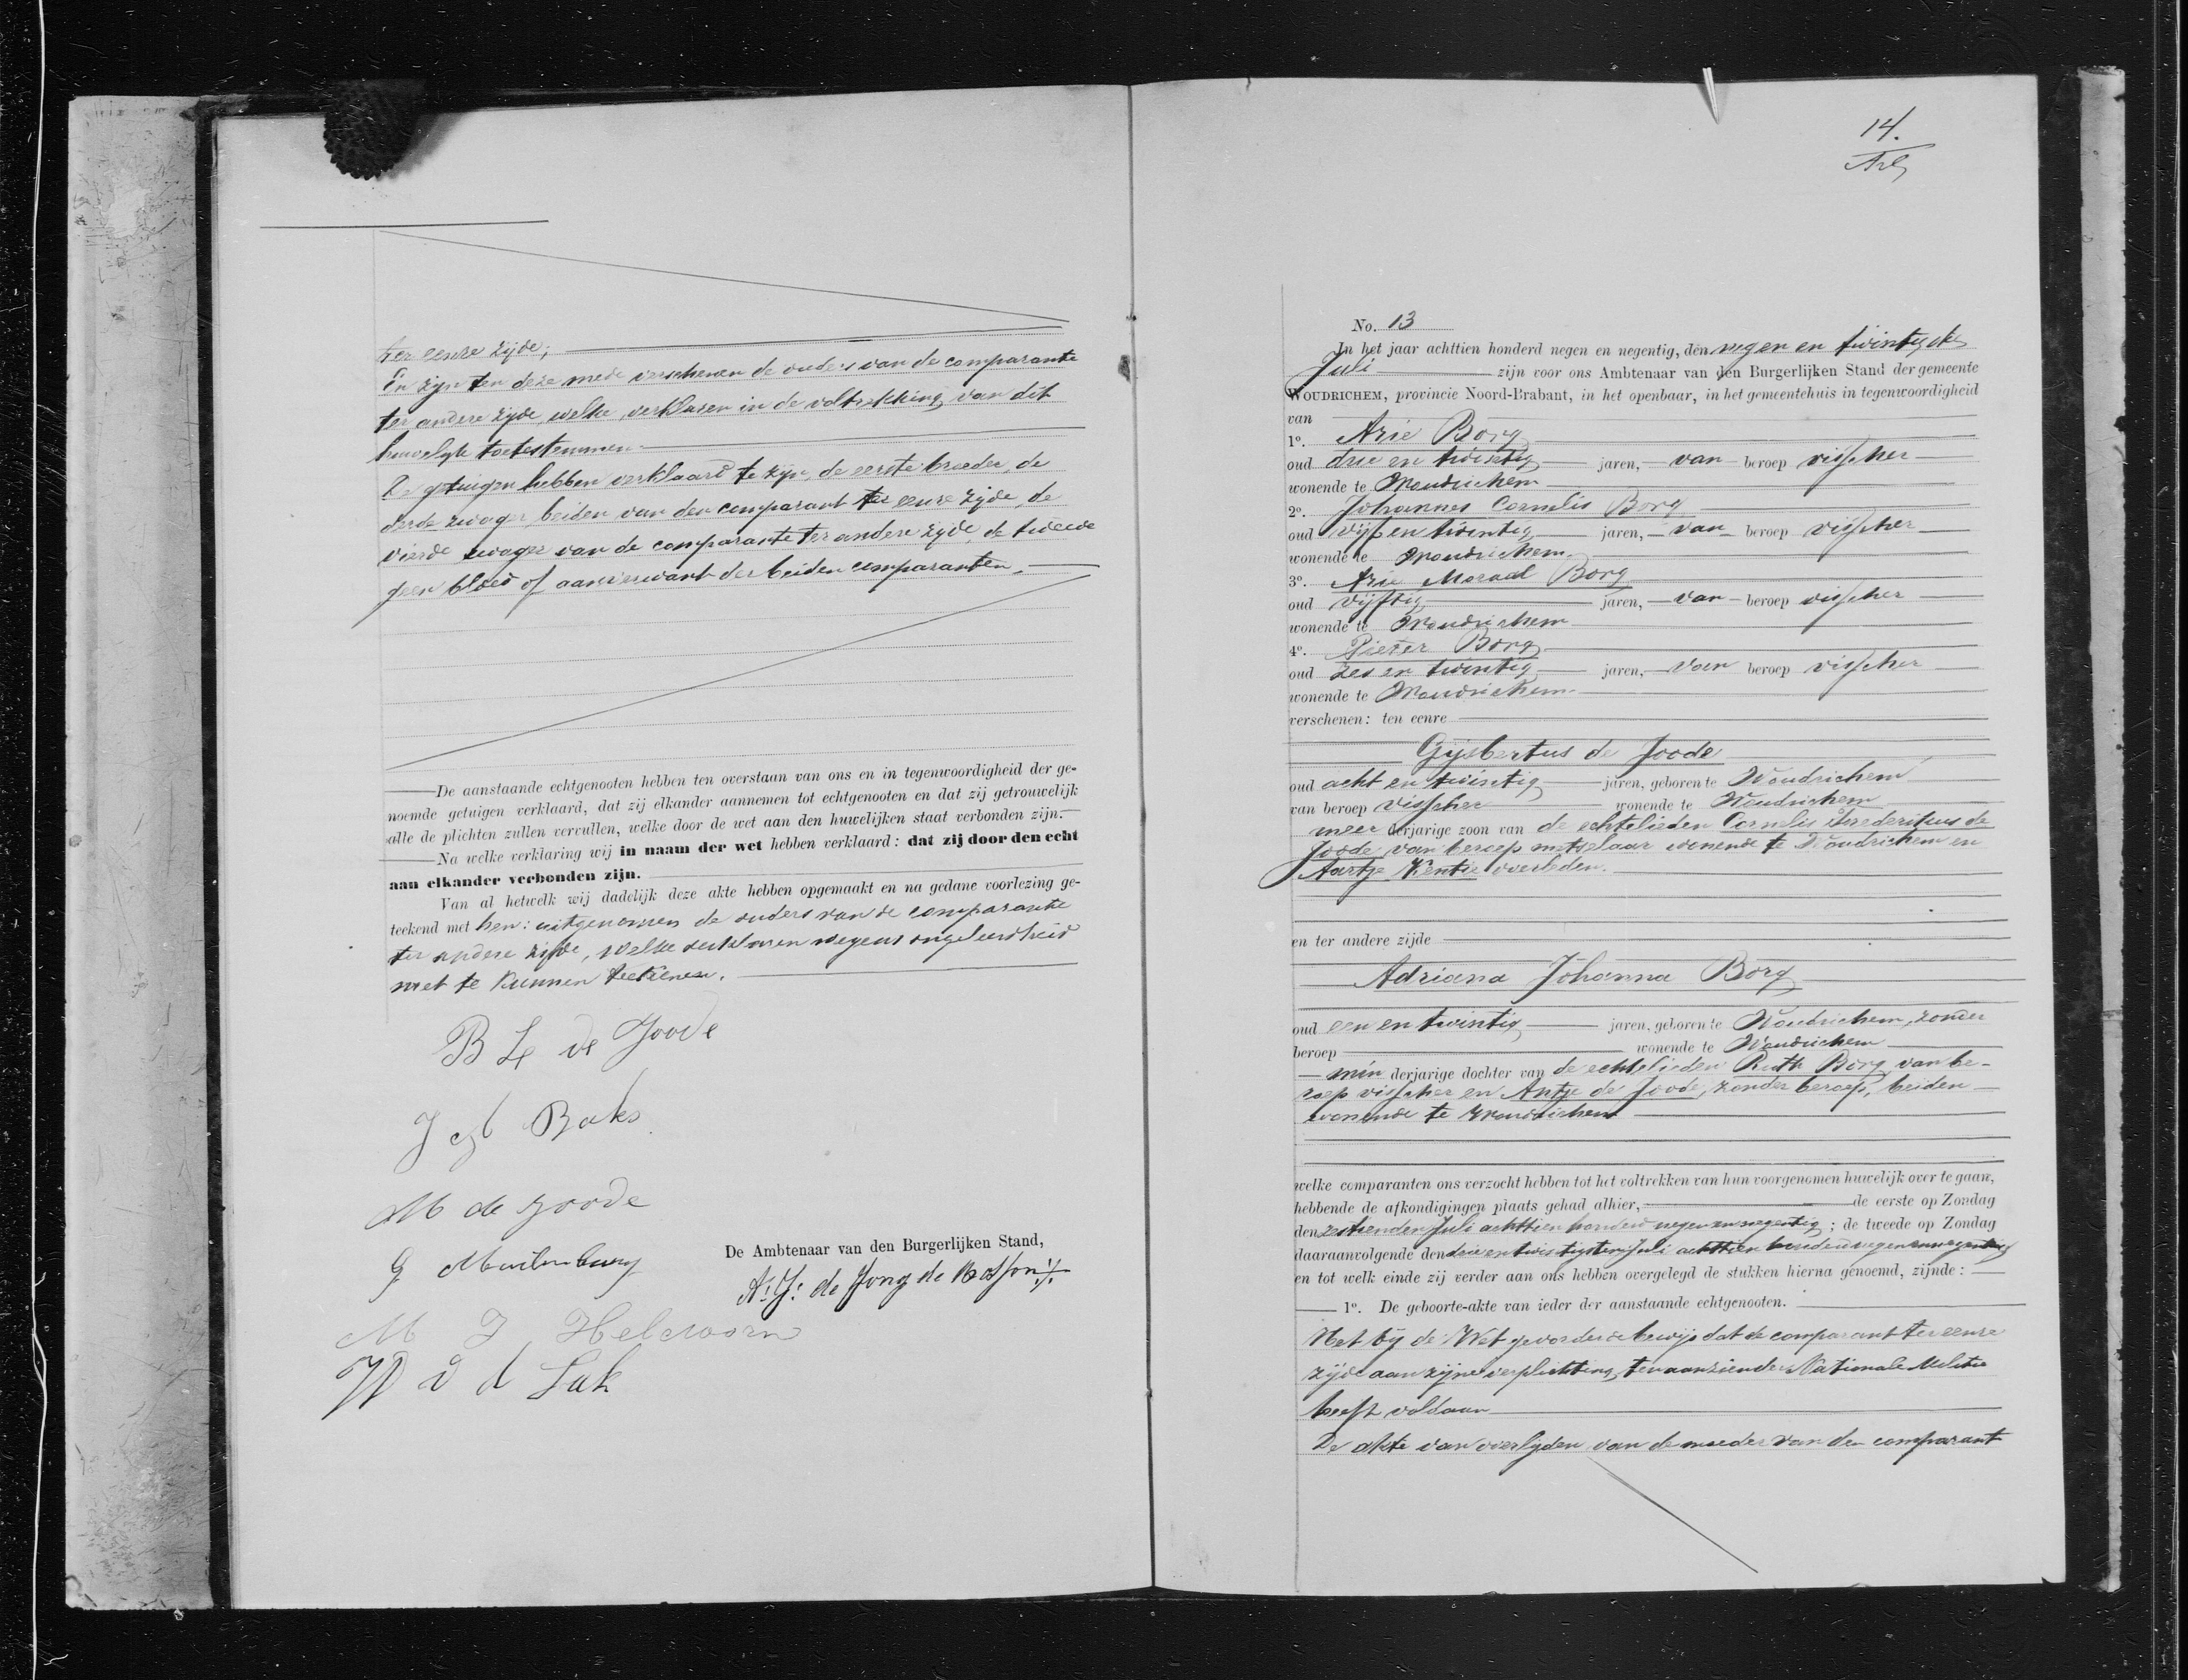 ter eenre zijde;
En zijn ten deze mede verschenen de ouders van de comparante
ter andere zijde, welke verklaren in de voltrekking van dit
huwelijk toetestemmen.
De getuigen hebben verklaard te zijn, de eerste broeder, de
derde zwager, beiden van den comparant ter eenre zijde, de
vierde zwager van de comparante ter andere zijde, de tweede
geen bloed of aanverwant der beiden comparanten.
De aanstaande echtgenooten hebben ten overstaan van ons en in tegenwoordigheid der ge-
noemde getuigen verklaard, dat zij elkander aannemen tot echtgenooten en dat zij getrouwelijk
alle de plichten zullen vervullen, welke door de wet aan den huwelijken staat verbonden zijn.
Na welke verklaring wij in naam der wet hebben verklaard: dat zij door den echt
aan elkander verbonden zijn.
Van al hetwelk wij dadelijk deze akte hebben opgemaakt en na gedane voorlezing ge-
teekend met hen: uitgenomen de ouders van de comparante
ter andere zijde, welke verklaren wegens ongeleerdheid
niet te kunnen teekenen.
B L de Joode
J Baks
M de Joode
G Muilenburg
De Ambtenaar van den Burgerlijken Stand,
A: G: de Jong
M J Helvoorn
W v d Lak
14.
No. 13
In het jaar achttien honderd negen en negentig, den negen en twintigsten
Juli zijn voor ons Ambtenaar van den Burgerlijken Stand der gemeente
WOUDRICHEM, provincie Noord-Brabant, in het openbaar, in het gemeentehuis in tegenwoordigheid
van
1o. Arie Borg
oud drie en twintig jaren, van beroep visscher
wonende te Woudrichem
2o. Johannes Cornelis Borg
oud vijf en twintig jaren, van beroep visscher
wonende te Woudrichem
3o. Arie Moraal Borg
oud vijftig jaren, van beroep visscher
wonende te Woudrichem
4o. Pieter Borg
oud zes en twintig jaren, van beroep visscher
wonende te Woudrichem
verschenen: ten eenre
Gijsbertus de Joode
oud acht en twintig jaren, geboren te Woudrichem
van beroep visscher wonende te Woudrichem
meer derjarige zoon van de echtelieden Cornelis Frederikus de
Joode van beroep metselaar wonende te Woudrichem en
Aartje Kentie overleden.
en ter andere zijde
Adriana Johanna Borg
oud een en twintig jaren, geboren te Woudrichem, zonder
beroep wonende te Woudrichem
min derjarige dochter van de echtelieden Ruth Borg van be-
roep visscher en Antje de Joode, zonder beroep, beiden
wonende te Woudrichem
welke comparanten ons verzocht hebben tot het voltrekken van hun voorgenomen huwelijk over te gaan,
hebbende de afkondigingen plaats gehad alhier, de eerste op Zondag
den zestienden Juli achttien honderd negen en negentig; de tweede op Zondag
daaraanvolgende den drie en twintigsten Juli achttien honderd negen en negentig
en tot welk einde zij verder aan ons hebben overgelegd de stukken hierna genoemd, zijnde:
1o. De geboorte-akte van ieder der aanstaande echtgenooten.
Het bij de Wet gevorderde bewijs dat de comparant ter eenre
zijde aan zijne verplichting ten aanzien der Nationale Militie
heeft voldaan
De akte van overlijden van de moeder van den comparant